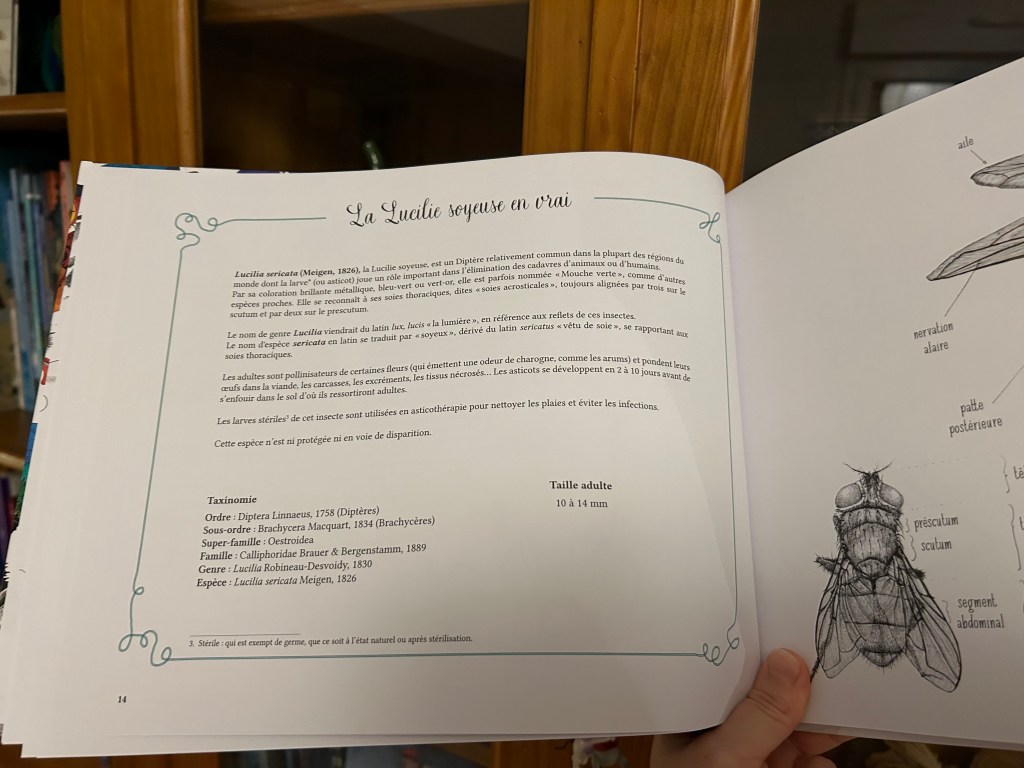 La Lucilie soyeuse en vrai
Lucilia sericata (Meigen, 1826), la Lucilie soyeuse, est un Diptère relativement commun dans la plupart des régions du
monde dont la larve* (ou asticot) joue un rôle important dans l'élimination des cadavres d'animaux ou d'humains.
Par sa coloration brillante métallique, bleu-vert ou vert-or, elle est parfois nommée « Mouche verte », comme d'autres
espèces proches. Elle se reconnaît à ses soies thoraciques, dites « soies acrosticales », toujours alignées par trois sur le
scutum et par deux sur le prescutum.
Le nom de genre Lucilia viendrait du latin lux, lucis « la lumière », en référence aux reflets de ces insectes.
Le nom d'espèce sericata en latin se traduit par « soyeux », dérivé du latin sericatus « vêtu de soie », se rapportant aux
soies thoraciques.
Les adultes sont pollinisateurs de certaines fleurs (qui émettent une odeur de charogne, comme les arums) et pondent leurs
œufs dans la viande, les carcasses, les excréments, les tissus nécrosés... Les asticots se développent en 2 à 10 jours avant de
s'enfouir dans le sol d'où ils ressortiront adultes.
Les larves stériles³ de cet insecte sont utilisées en asticothérapie pour nettoyer les plaies et éviter les infections.
Cette espèce n'est ni protégée ni en voie de disparition.
Taxinomie
Ordre : Diptera Linnaeus, 1758 (Diptères)
Sous-ordre : Brachycera Macquart, 1834 (Brachycères)
Super-famille : Oestroidea
Famille : Calliphoridae Brauer & Bergenstamm, 1889
Genre : Lucilia Robineau-Desvoidy, 1830
Espèce : Lucilia sericata Meigen, 1826
Taille adulte
10 à 14 mm
3. Stérile : qui est exempt de germe, que ce soit à l'état naturel ou après stérilisation.
14
aile
nervation
alaire
patte
postérieure
préscutum
scutum
segment
abdominal